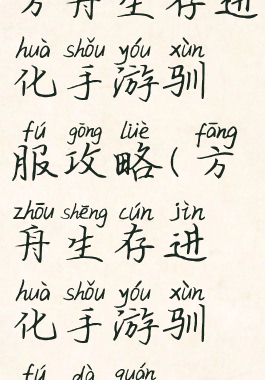 方舟生存进
huà shǒu yóu xùn
化手游驯
fú gōng lüè fāng
服攻略(方
zhōu shēng cún jìn
舟生存进
huà shǒu yóu xùn
化手游驯
fú dà quán